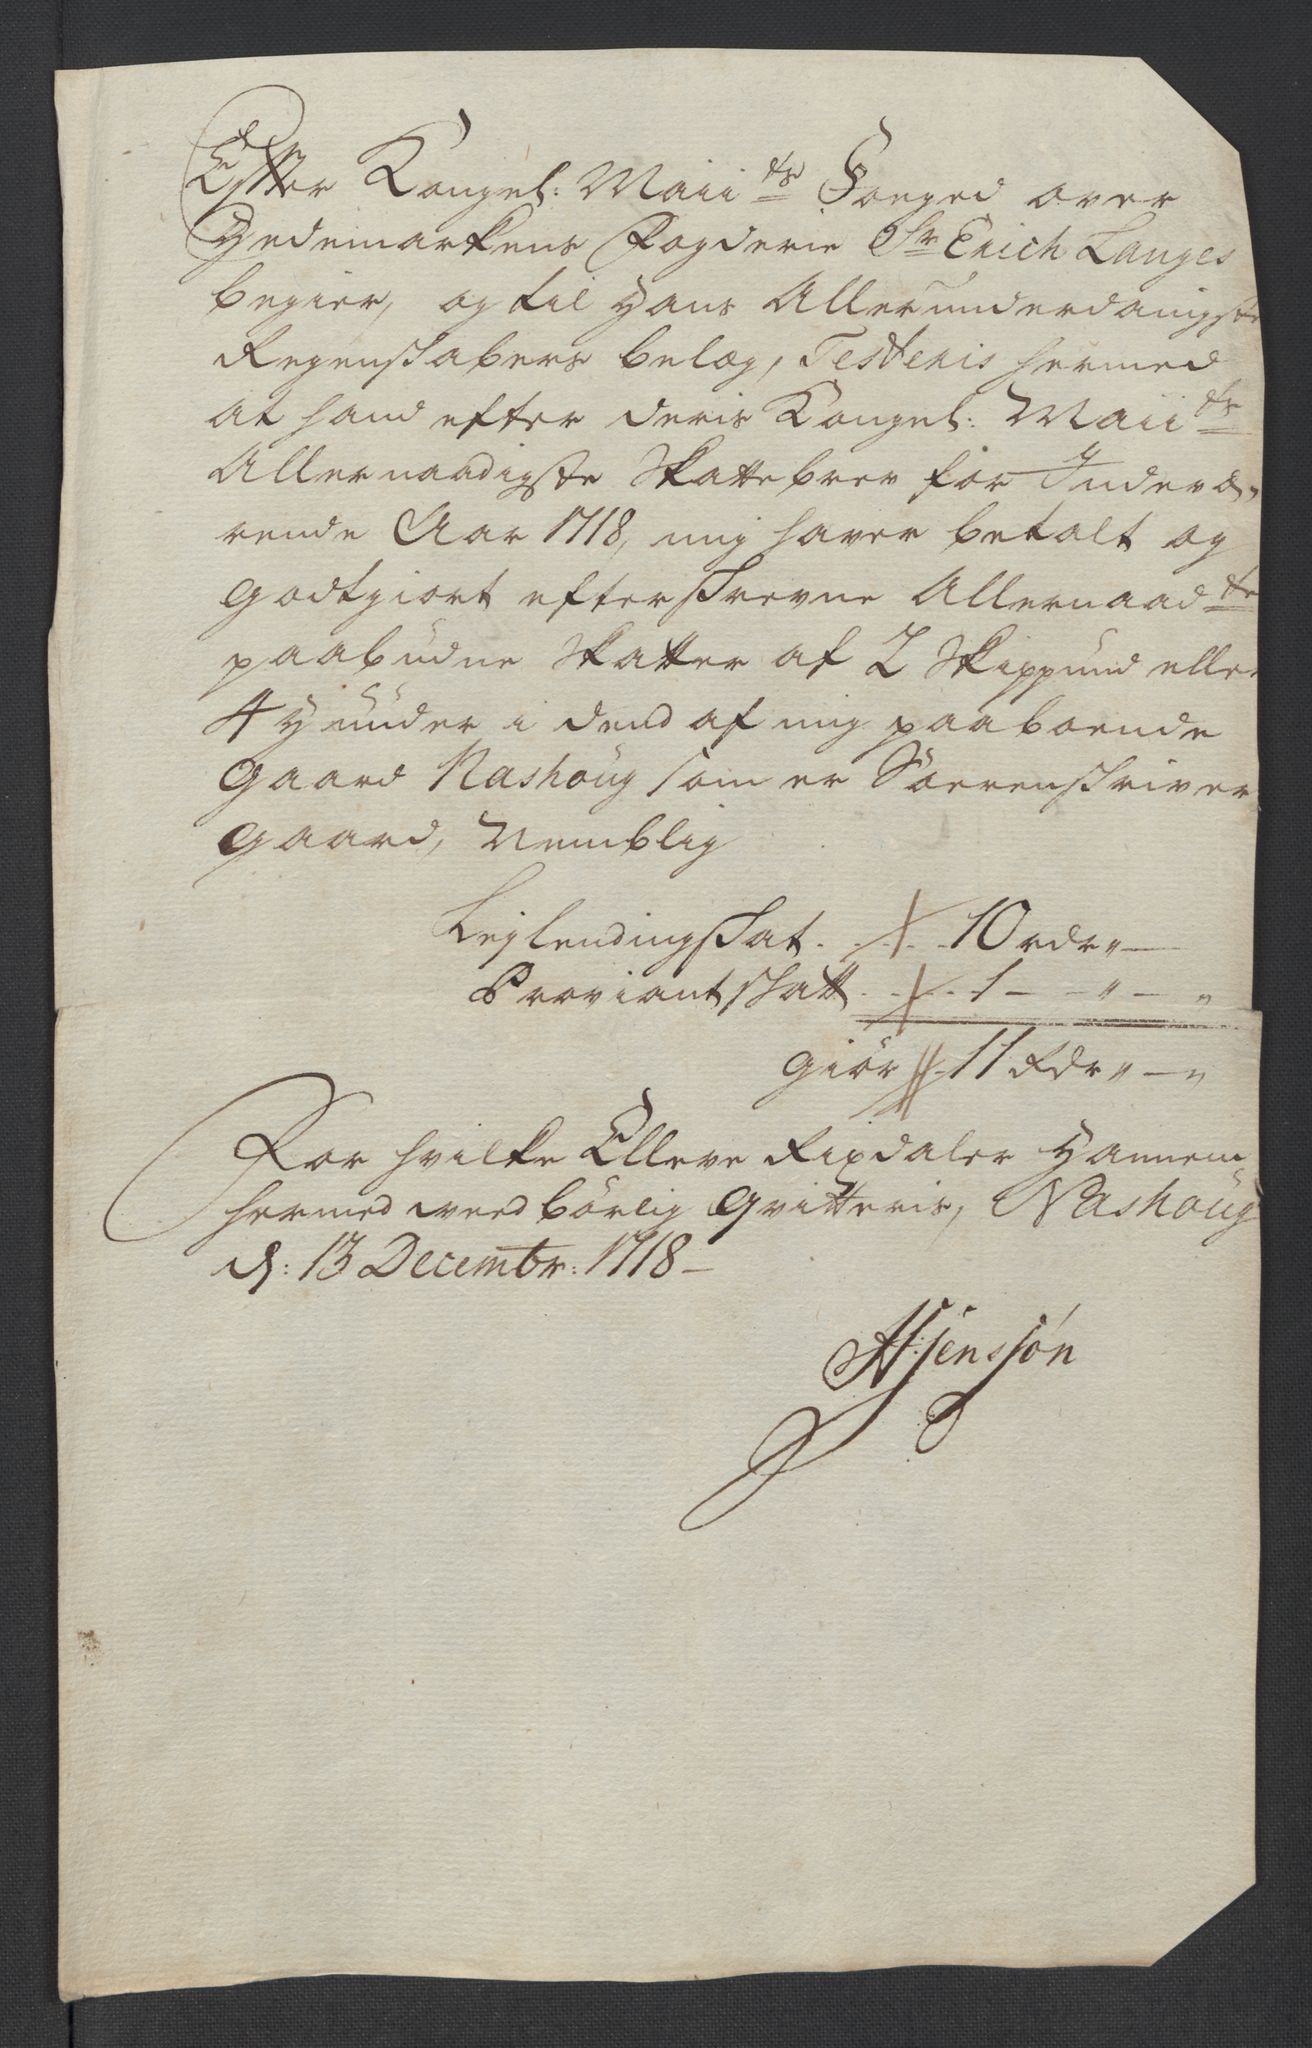 Effter Kongel: Maii.ts Foeged over
Hedemarkens Fogderie Sr Erich Langes
begier, og til Hans Allerunderdanigste
Regenskabers belæg, Testeris hermed
at hand efter deris Kongel: Maii.ts
Allernaadigste Skattebrev for Indevæ,,
rende Aar 1718, mig haver betalt og
godtgiort efterskrevne Allernaad.ste
paabudne Skatter af 2 Skippund eller
4 Hunder i dend af mig paaboende
gaard Nashoug som er Soerenskriver
gaard, Nemblig
Lejlendingskat. . . . 10 rdr,, —
Proviantskatt . . . 1 — ,, — ,,
giör . 11 Rdr,, — ,,
For hvilke Elleve Rixdaler Hannem
hermed veed börlig qvitteris, Nashoug
d: 13 Decembr: 1718 –
AJensøn